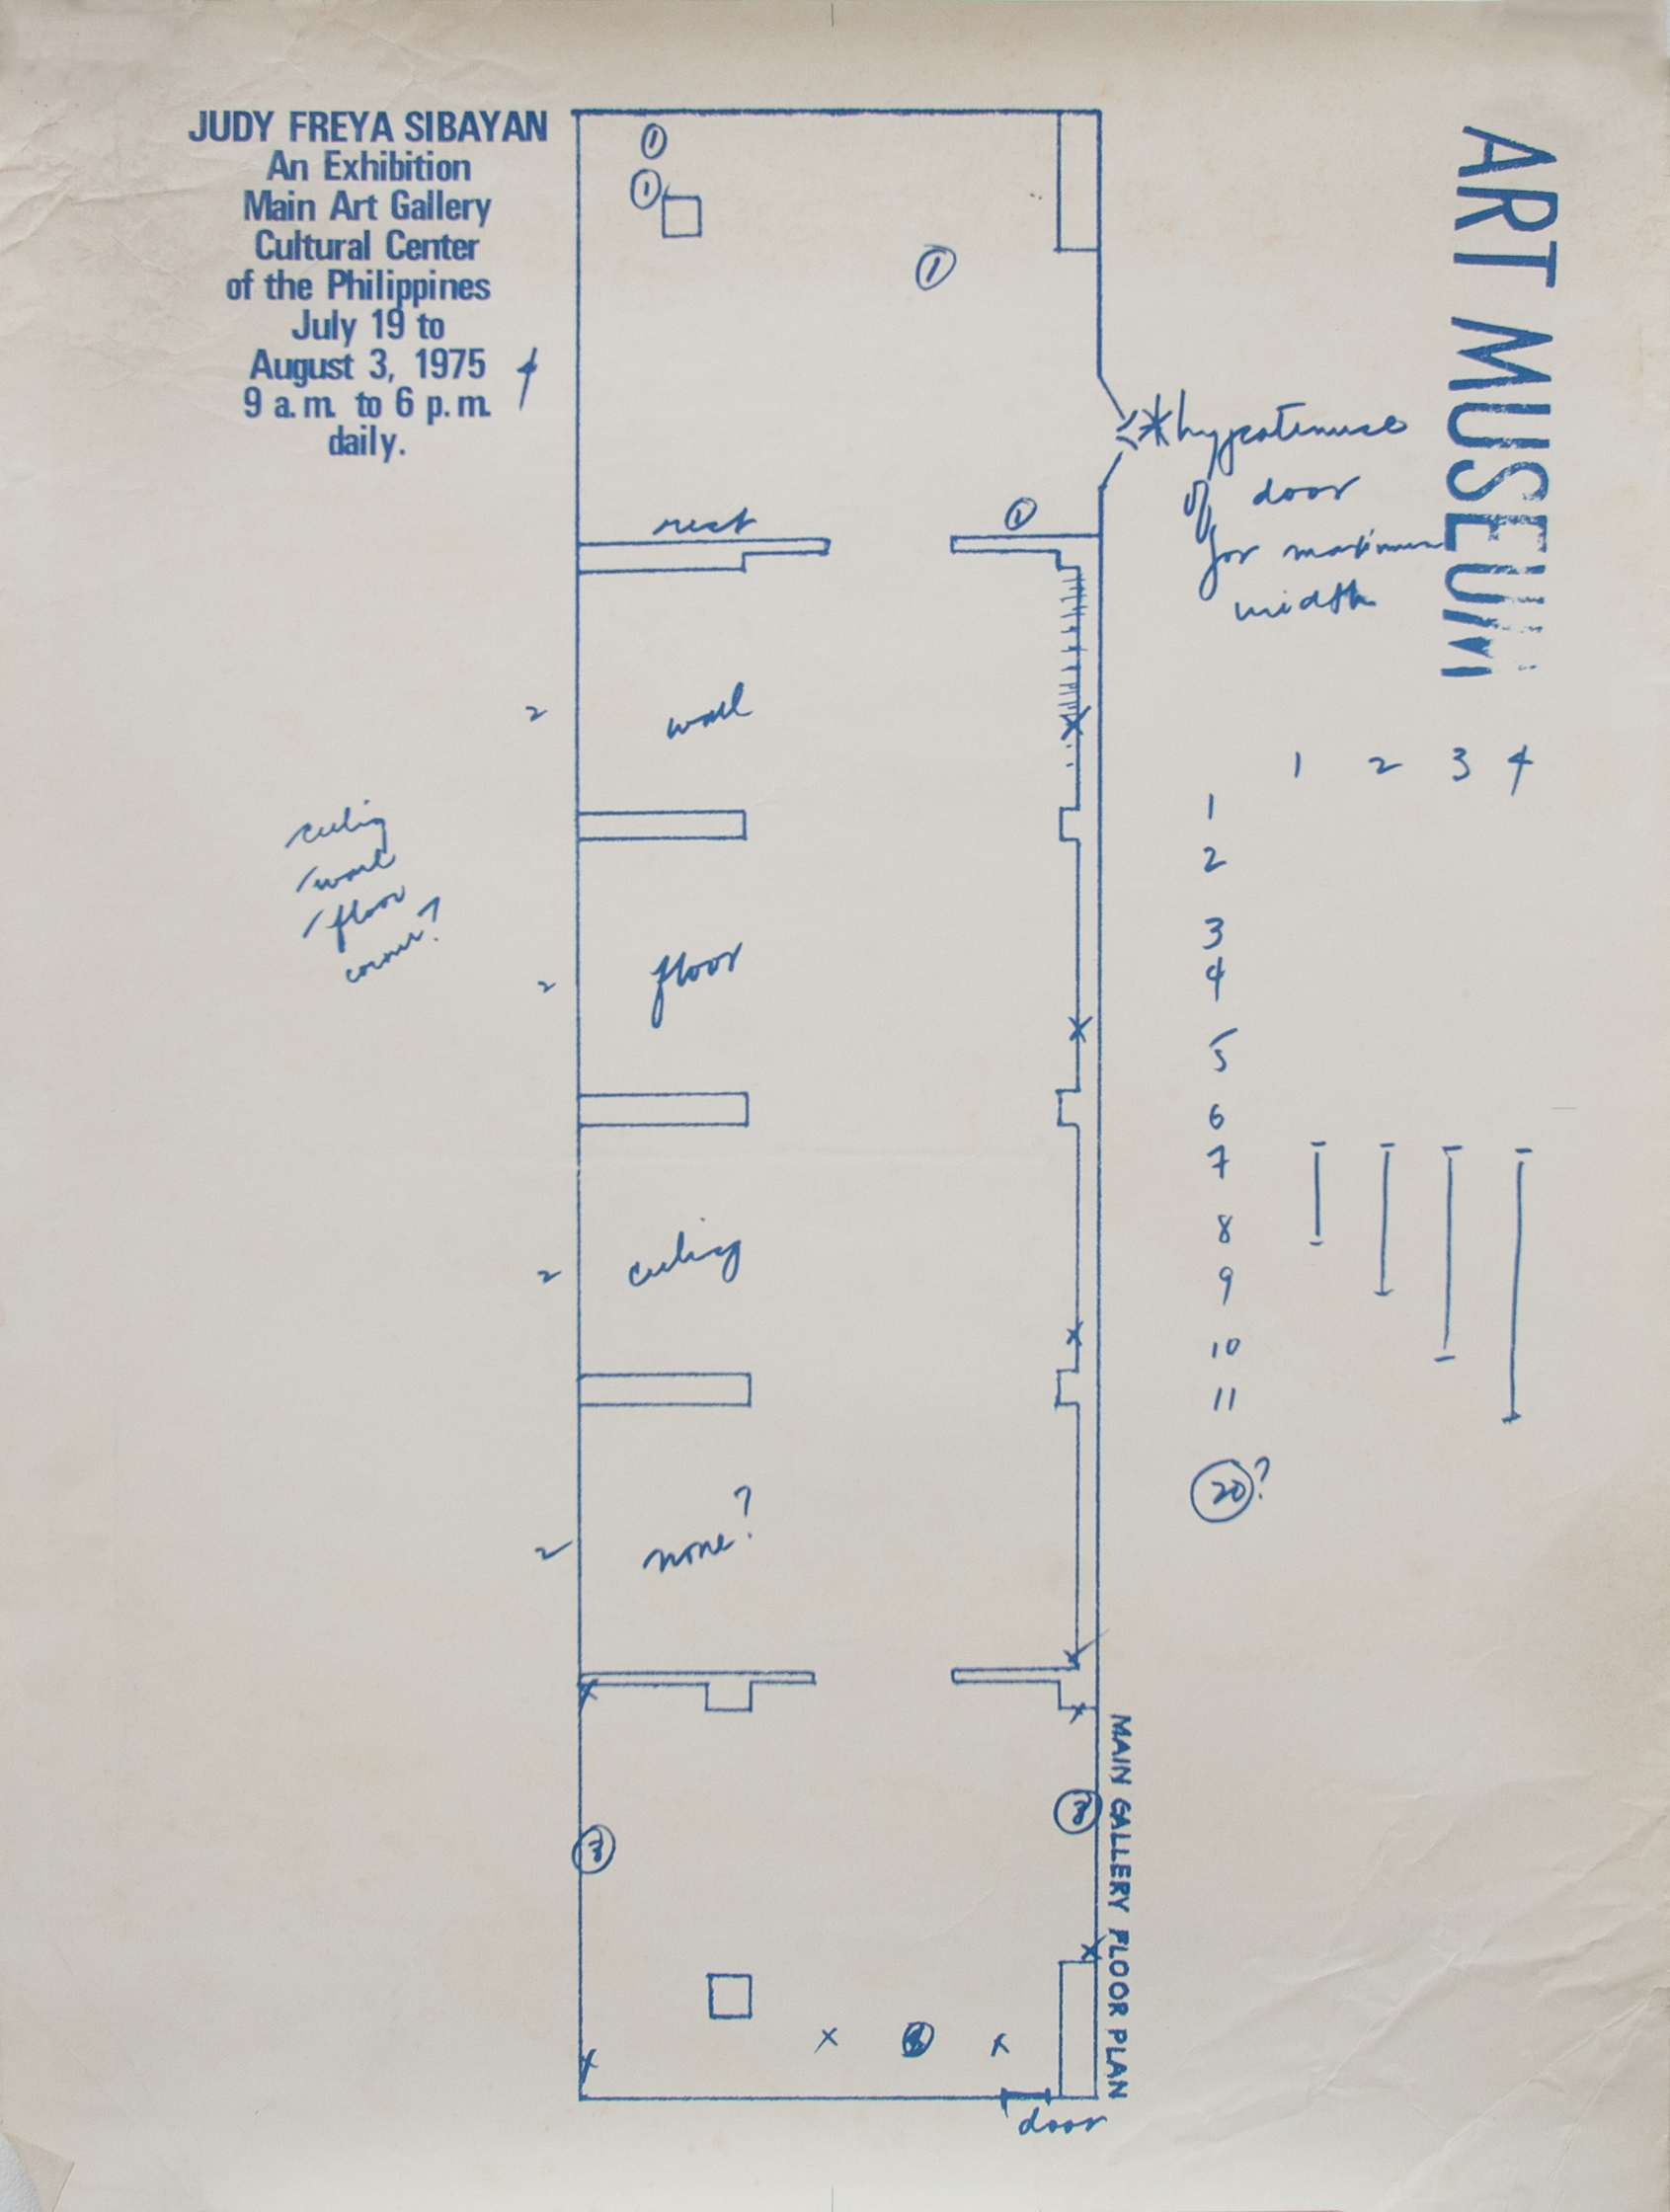 JUDY FREYA SIBAYAN
An Exhibition
Main Art Gallery
Cultural Center
of the Philippines
July 19 to
August 3, 1975
9 a.m. to 6 p.m.
daily.
4
1
1
1
ART MUSEUM
*hypotenuse
of door
for maximum
width
rest
1
2
wall
ceiling
wall
floor
corner?
2
floor
2
ceiling
2
none?
1 2 3 4
1
2
3
4
5
6
7
8
9
10
11
20?
MAIN GALLERY FLOOR PLAN
x x
door